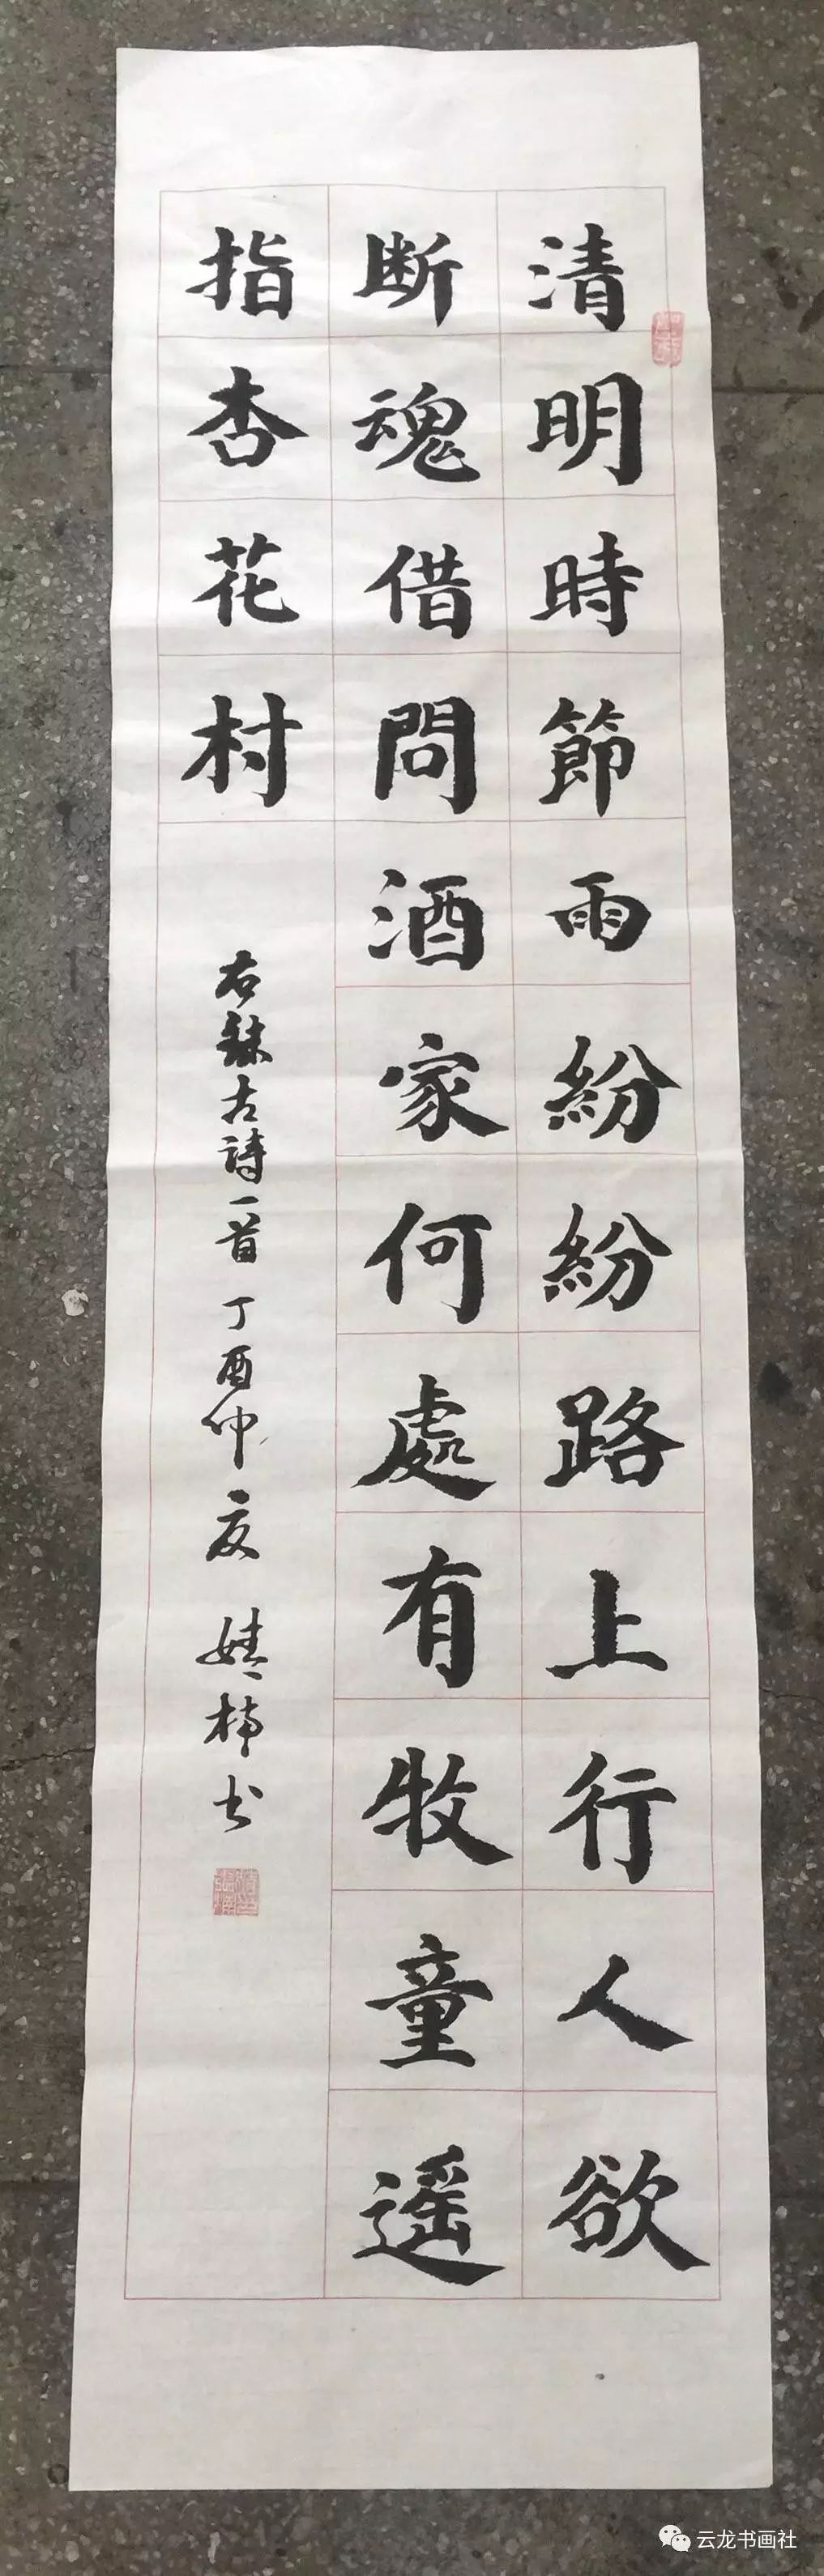 清明時節雨紛紛路上行人欲
断魂借問酒家何處有牧童遥
指杏花村
右録古詩一首丁酉仲夏婧楠书
云龙书画社